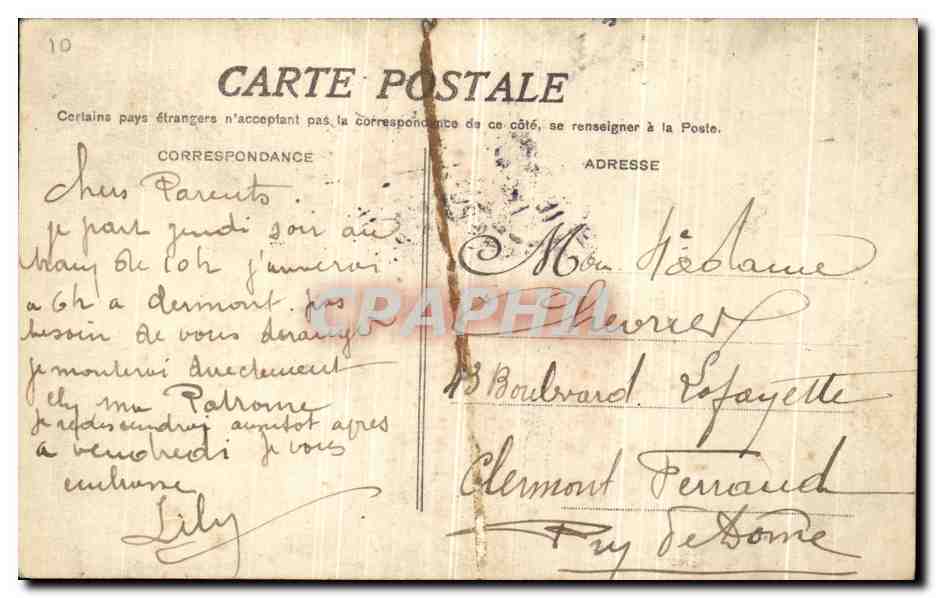 10
CARTE POSTALE
Certains pays étrangers n'acceptant pas la correspondance de ce côté, se renseigner à la Poste.
CORRESPONDANCE
chers Parents.
je part jeudi soir au
train de 10h j'arriverai
a 6h a clermont. pas
besoin de vous deranger
je monterai directement
chez ma Patronne
je redescendrai aussitot apres
a vendredi je vous
embrasse
Lily
ADRESSE
Madame
Chevrier
43 Boulevard Lafayette
Clermont Ferrand
Puy de Dome
CPARHI